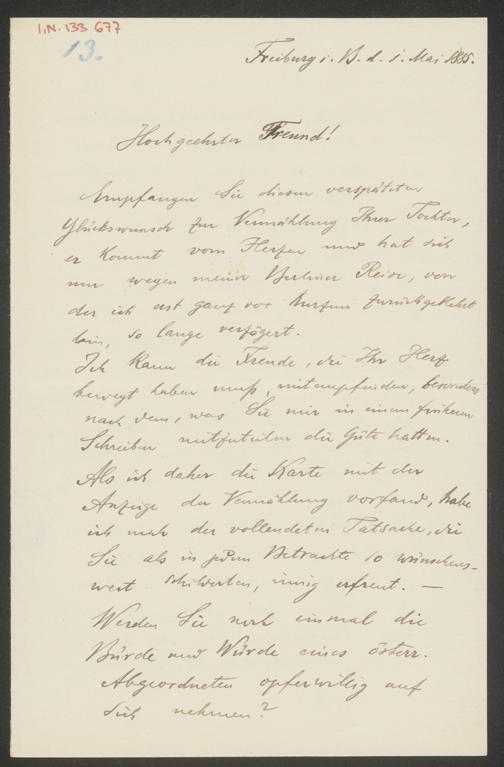 I.N. 133 677
13.
Freiburg i. B. d. 1. Mai 1885.
Hochgeehrter Freund!
Empfangen Sie diesen verspäteten
Glückswunsch zur Vermählung Ihrer Tochter,
er kommt vom Herzen und hat sich
nur wegen meiner Berliner Reise, von
der ich erst ganz vor kurzem zurückgekehrt
bin, so lange verzögert.
Ich kann die Freude, die Ihr Herz
bewegt haben muß, mitempfinden, besonders
nach dem, was Sie mir in einem früheren
Schreiben mitzuteilen die Güte hatten.
Als ich daher die Karte mit der
Anzeige der Vermählung vorfand, habe
ich mich der vollendeten Tatsache, die
Sie als in jedem Betrachte so wünschens-
wert schilderten, innig erfreut. —
Werden Sie noch einmal die
Bürde und Würde eines österr.
Abgeordneten opferwillig auf
sich nehmen?